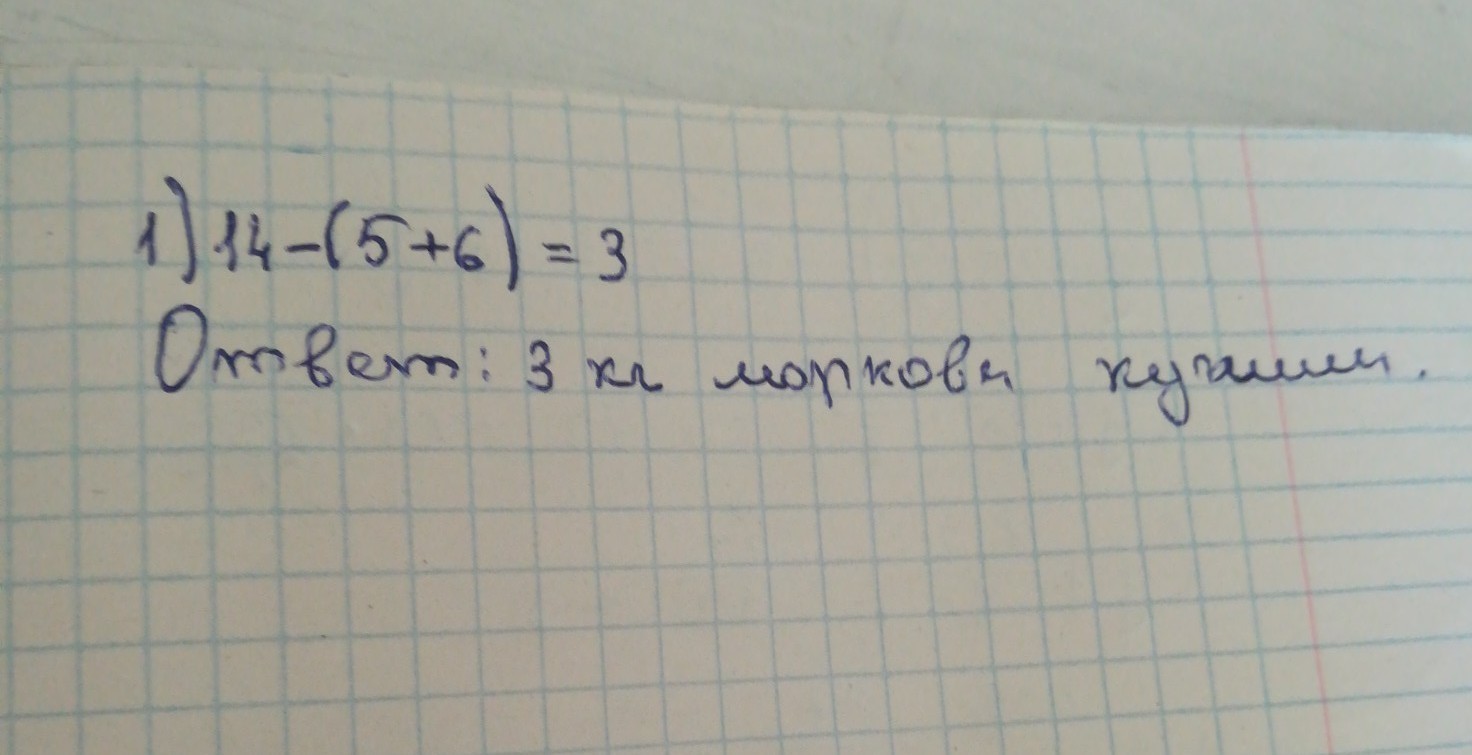 1) 14-(5+6) = 3
Ответ: 3 кг моркови купили.